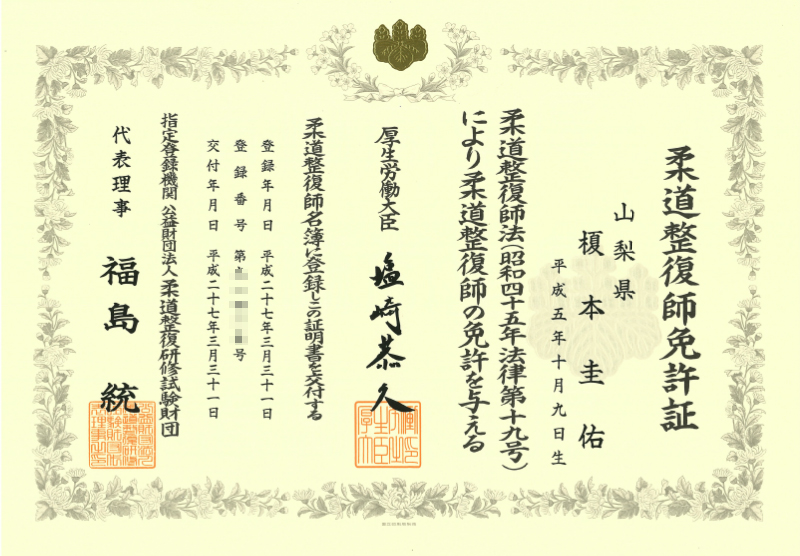 柔道整復師免許証
山梨県
榎本圭佑
平成五年十月九日生
柔道整復師法(昭和四十五年法律第十九号)
により柔道整復師の免許を与える
厚生労働大臣 塩崎恭久
柔道整復師名簿に登録しこの証明書を交付する
登録年月日 平成二十七年三月三十一日
登録番号 第 号
交付年月日 平成二十七年三月三十一日
指定登録機関 公益財団法人柔道整復研修試験財団
代表理事 福島統